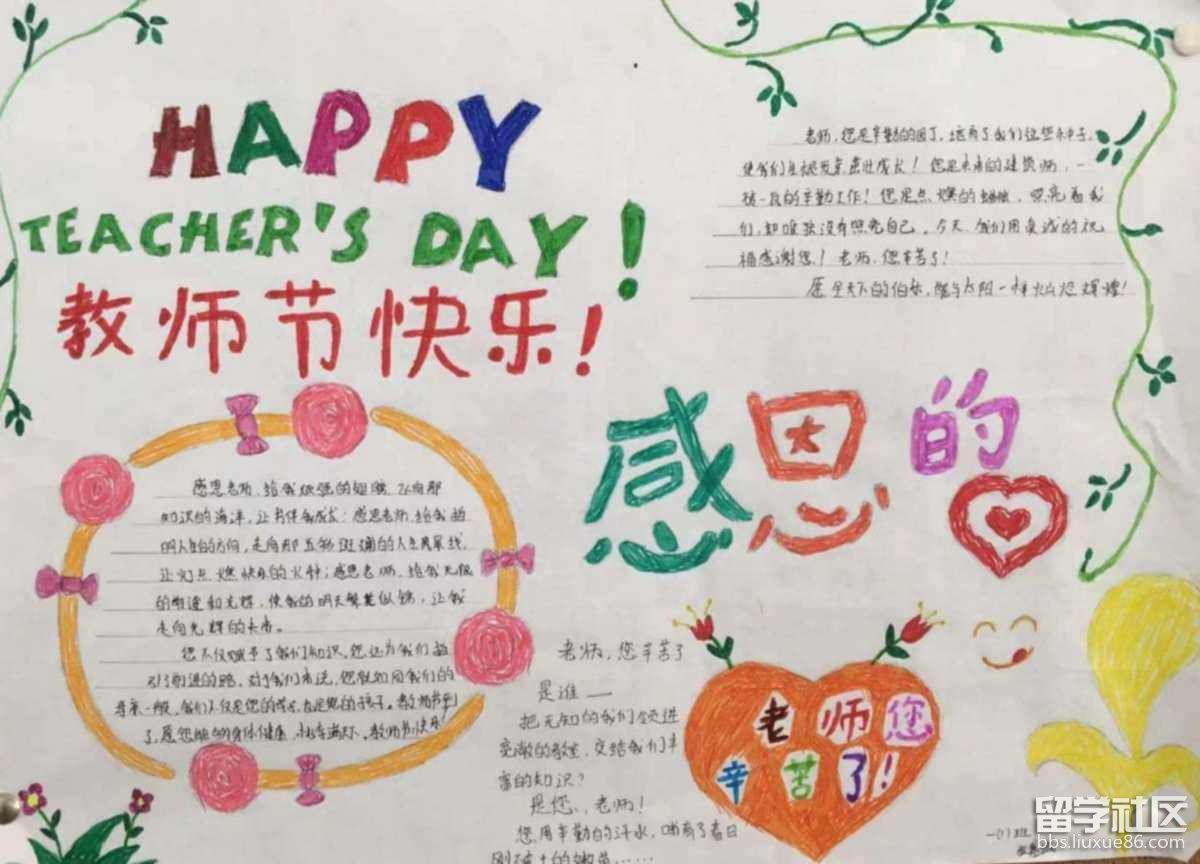 HAPPY
TEACHER'S DAY!
教师节快乐!
老师,您是辛勤的园丁,培育了我们这些种子,
使我们生根发芽茁壮成长!您是未来的建筑师,一
砖一瓦的辛勤工作!您是点燃的蜡烛,照亮着我
们,却唯独没有照亮自己。今天,我们用真诚的祝
福感谢您!老师,您辛苦了!
愿全天下的伯乐,能与太阳一样灿烂辉煌!
感恩的
感恩老师,给我 的翅膀,飞向那
知识的海洋,让书伴我成长;感恩老师,给我指
明人生的方向,走向那五彩斑斓的人生风景线,
让灯点燃快乐的火种;感恩老师,给我无限
的 和光辉,使我的明天繁花似锦,让我
走向光辉的未来。
您不仅赋予了我们知识,您还为我们指
引前进的路,对于我们来说,您就如同我们的
母亲一般,我们不仅是您的学生,也是您的孩子。教师节到
了,愿您能够身体健康,桃李满天下。教师节快乐!
老师,您辛苦了
是谁——
把无知的我们领进
宽敞的教室,交给我们丰
富的知识?
是您,老师!
您用辛勤的汗水,哺育了春日
刚破土的嫩苗……
老师您
辛苦了!
一(1)班
留学社区
bbs.liuxue86.com